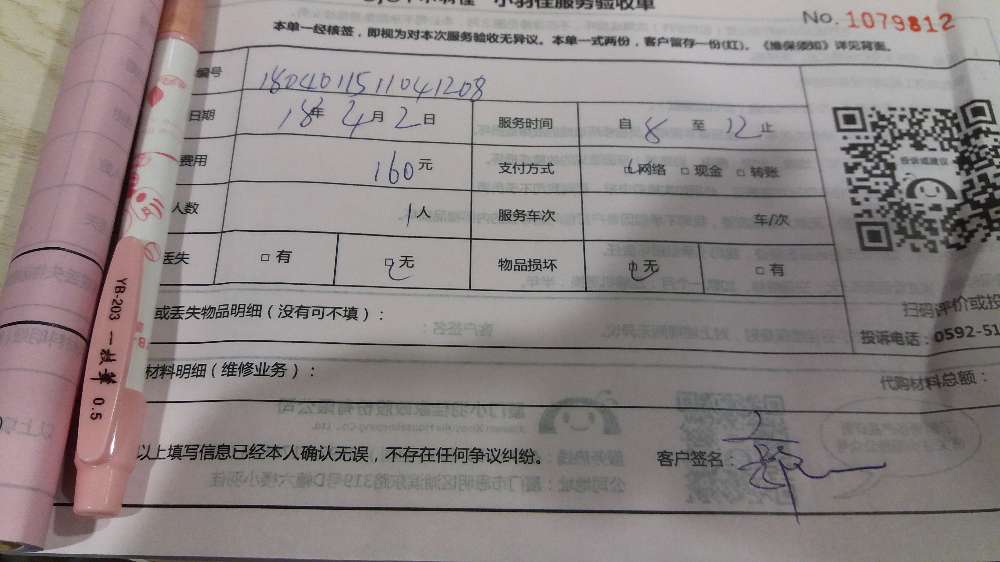 小羽佳服务验收单
No. 1079812
本单一经核签，即视为对本次服务验收无异议。本单一式两份，客户留存一份(红)。《维保须知》详见背面。
编号 1804011511041208
日期 18年4月2日 服务时间 自8至12止
费用 160元 支付方式 网络 现金 转账
人数 1人 服务车次 车/次
丢失 有 无 物品损坏 无 有
投诉或建议
扫码评价或投
或丢失物品明细（没有可不填）：
投诉电话：0592-51
材料明细（维修业务）：
代购材料总额：
以上填写信息已经本人确认无误，不存在任何争议纠纷。 客户签名：
YB-203 一枝笔 0.5